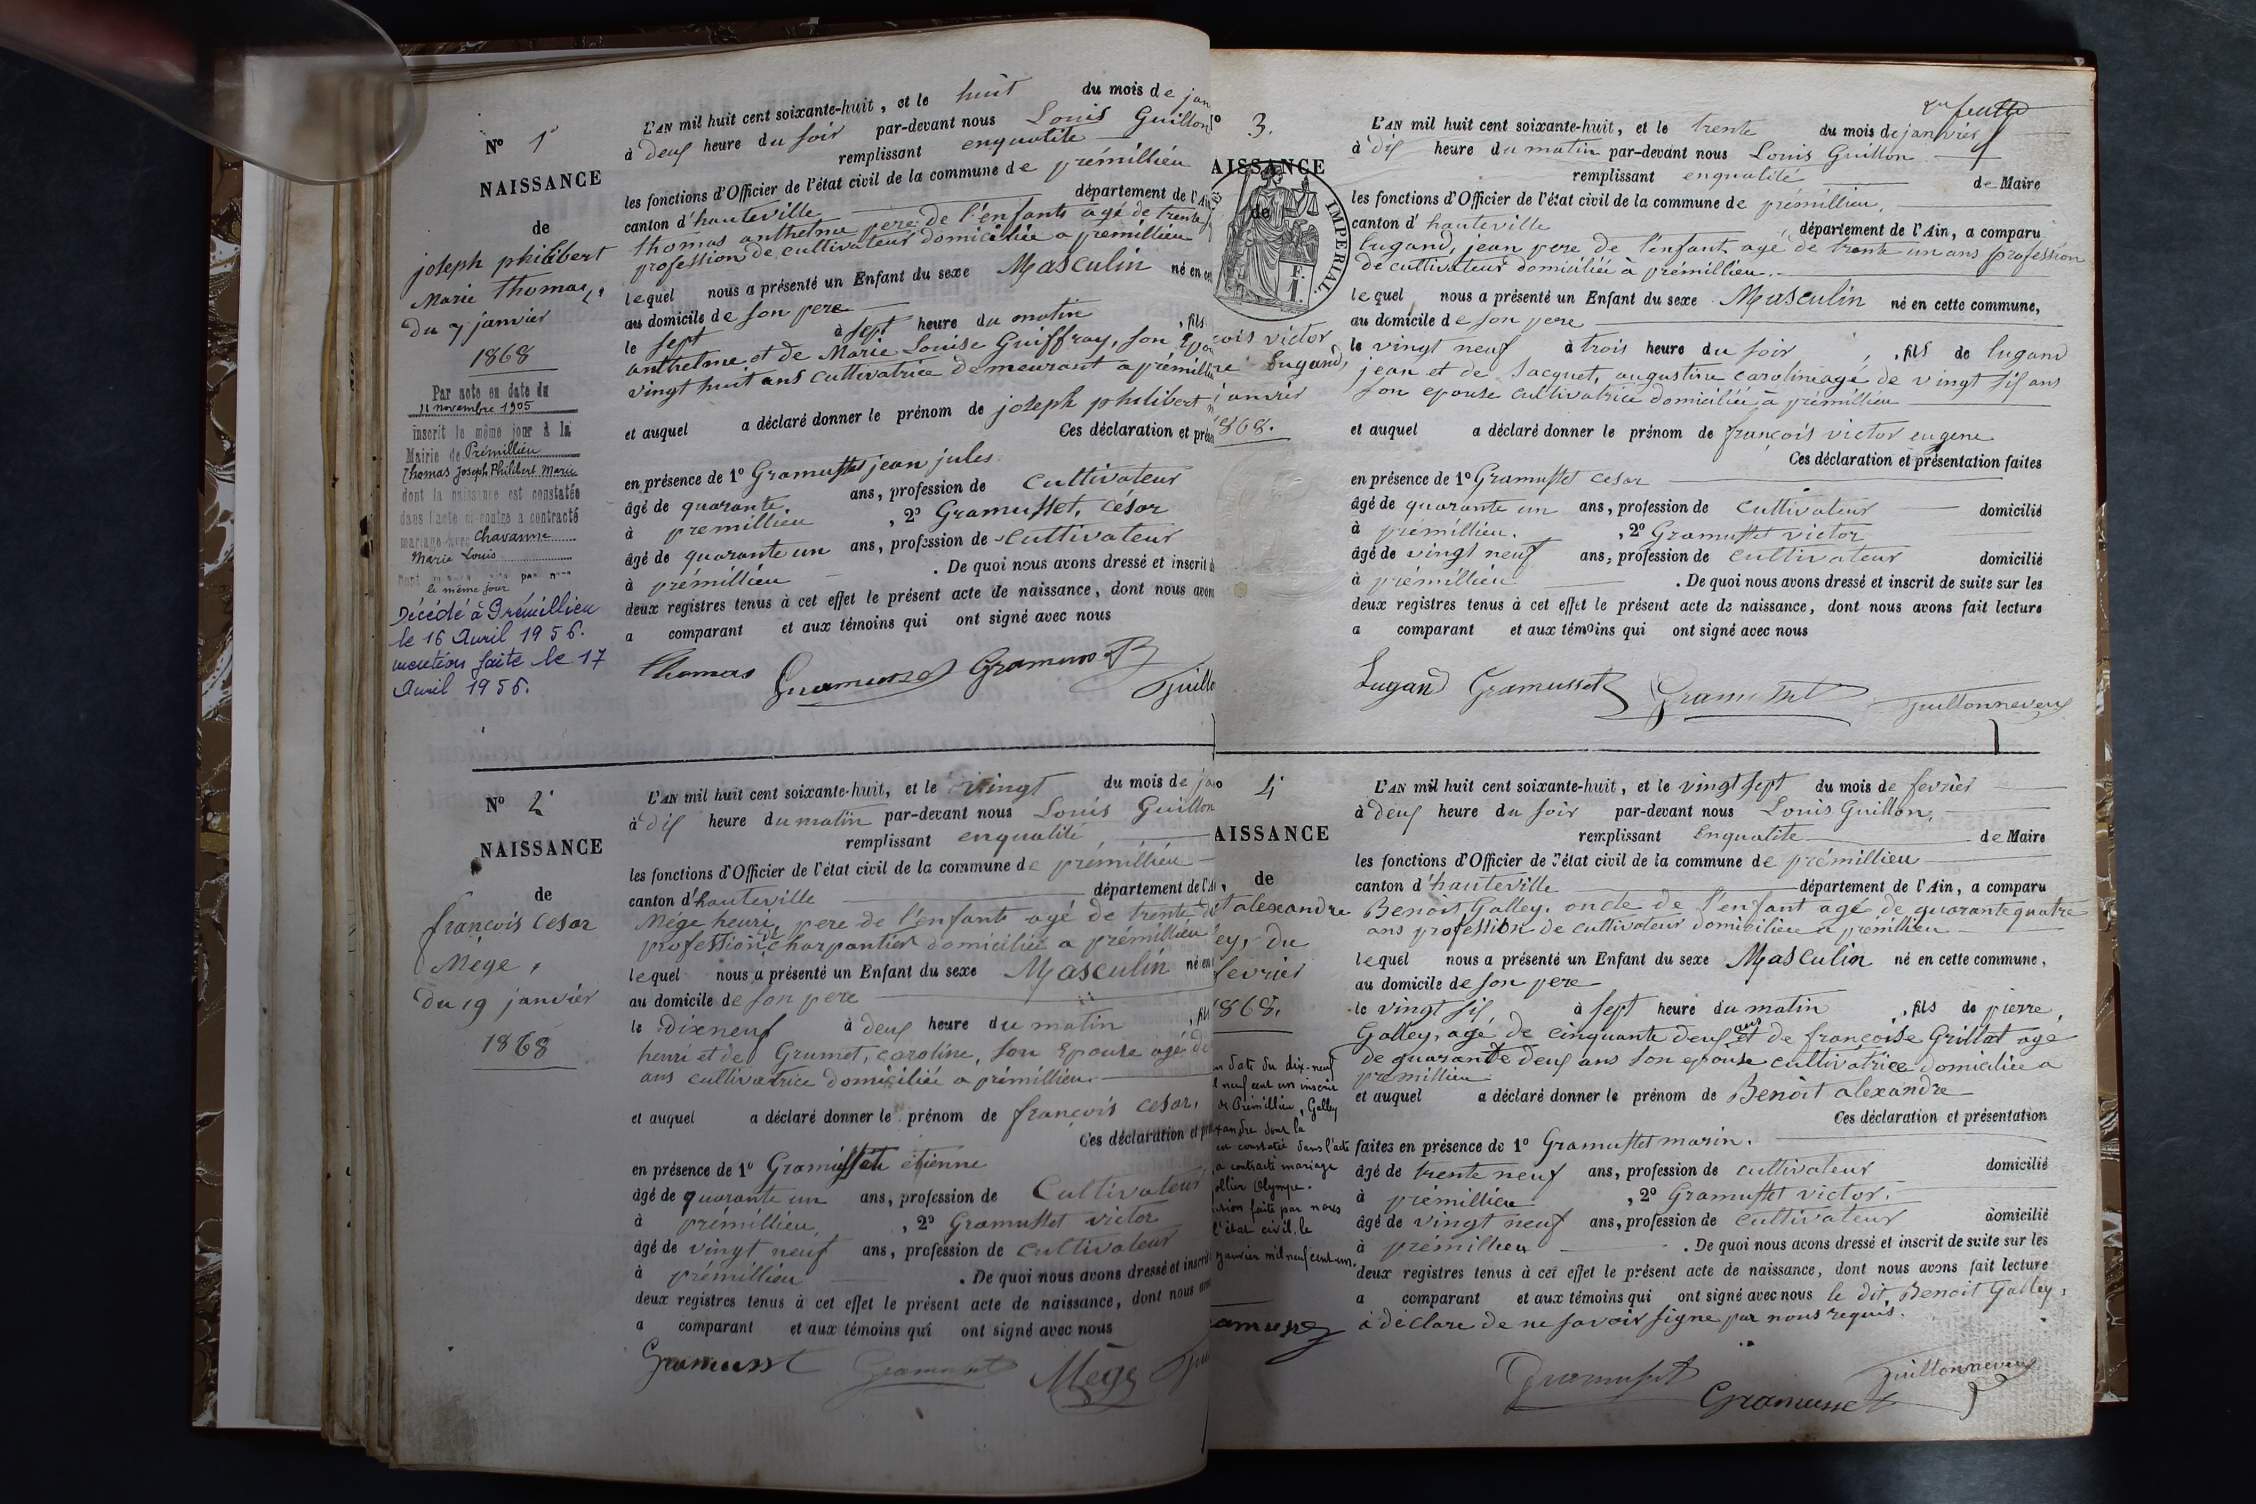 Nº 1
NAISSANCE
de
joseph philibert
Marie thomas
du 7 janvier
1868
Par acte en date du
11 novembre 1905
inscrit le même jour à la
Mairie de Prémillieu
Thomas Joseph Philibert Marie
dont la naissance est constatée
dans l'acte ci-contre a contracté
mariage avec Chavanne
Marie Louis
le même jour
Décédé à Prémillieu
le 16 Avril 1956.
mention faite le 17
Avril 1956.
L'AN mil huit cent soixante-huit, et le huit du mois de jan
à deux heure du soir par-devant nous Louis Guillon
remplissant enqualite
les fonctions d'Officier de l'état civil de la commune de prémillieu
canton d'hauteville département de l'Ain
thomas anthelme pere de l'enfants agé de trente
profession de cultivateur domiciliée a premillieu
lequel nous a présenté un Enfant du sexe Masculin né en ce
au domicile de son pere
le sept à sept heure du matin , fils
anthelme et de Marie Louise Guiffray, son Epou
vingt huit ans cultivatrice demeurant a prémillieu
et auquel a déclaré donner le prénom de joseph philibert
Ces déclaration et prése
en présence de 1º Gramusset jean jules
âgé de quarante ans, profession de cultivateur
à premillieu , 2º Gramusset, césar
âgé de quarante un ans, profession de cultivateur
à premillieu . De quoi nous avons dressé et inscrit d
deux registres tenus à cet effet le présent acte de naissance, dont nous avons
a comparant et aux témoins qui ont signé avec nous
Thomas Gramusset Gramusset Guillo
Nº 2
NAISSANCE
de
françois cesar
Mége,
du 19 janvier
1868
L'AN mil huit cent soixante-huit, et le vingt du mois de ja
à dix heure du matin par-devant nous Louis Guillon
remplissant enqualité
les fonctions d'Officier de l'état civil de la commune de prémillieu
canton d'hauteville département de l'Ai
Mége henri, pere de l'enfants agé de trente
profession de charpantier domiciliée a prémillieu
lequel nous a présenté un Enfant du sexe Masculin né en
au domicile de son pere
le dixneuf à deux heure du matin , fils
henri et de Grumet, caroline, son Epouse agé de
ans cultivatrice domiciliée a prémillieu
et auquel a déclaré donner le prénom de françois cesar,
Ces déclaration et pré
en présence de 1º Gramusset etienne
âgé de quarante un ans, profession de Cultivateur
à prémillieu , 2º Gramusset victor
âgé de vingt neuf ans, profession de cultivateur
à prémillieu . De quoi nous avons dressé et inscrit
deux registres tenus à cet effet le présent acte de naissance, dont nous avons
a comparant et aux témoins qui ont signé avec nous
Gramusset Gramusset Mége
º 3.
AISSANCE
de
IMPERIAL
çois victor
Lugand,
janvier
1868.
L'AN mil huit cent soixante-huit, et le trente du mois de janvier
à dix heure du matin par-devant nous Louis Guillon
remplissant enqualité de Maire
les fonctions d'Officier de l'état civil de la commune de prémillieu,
canton d'hauteville, département de l'Ain, a comparu
lugand, jean pere de l'enfant, agé de trente un ans profession
de cultivateur domiciliée à prémillieu.
lequel nous a présenté un Enfant du sexe Masculin né en cette commune,
au domicile de son pere
le vingt neuf à trois heure du soir , fils de lugand
jean et de Jacquet, augustine caroline agé de vingt six ans
son epouse cultivatrice domiciliée à prémillieu
et auquel a déclaré donner le prénom de françois victor eugene
Ces déclaration et présentation faites
en présence de 1º Gramusset cesar
âgé de quarante un ans, profession de cultivateur domicilié
à prémillieu. , 2º Gramusset victor
âgé de vingt neuf ans, profession de cultivateur domicilié
à prémillieu . De quoi nous avons dressé et inscrit de suite sur les
deux registres tenus à cet effet le présent acte de naissance, dont nous avons fait lecture
a comparant et aux témoins qui ont signé avec nous
Lugand Gramusset Gramusset Guillon neveu
º 4
AISSANCE
de
t alexandre
ey, du
fevrier
1868.
en date du dix-neuf
neuf cent un inscrit
de Prémillieu, Galley
xandre dont la
constatée dans l'acte
a contracté mariage
ollier Olympe.
tion faite par nous
l'état civil, le
janvier mil neuf cent un.
L'AN mil huit cent soixante-huit, et le vingt sept du mois de fevrier
à deux heure du soir par-devant nous Louis Guillon,
remplissant Enqualite de Maire
les fonctions d'Officier de l'état civil de la commune de prémillieu
canton d'hauteville département de l'Ain, a comparu
Benoit Galley, oncle de l'enfant agé de quarante quatre
ans profession de cultivateur domiciliée a premillieu
lequel nous a présenté un Enfant du sexe Masculin né en cette commune,
au domicile de son pere
le vingt six, à sept heure du matin , fils de pierre,
Galley, agé de cinquante deux ans et de françoise Grillat agé
de quarante deux ans son epouse cultivatrice domiciliée a
premillieu
et auquel a déclaré donner le prénom de Benoit alexandre
Ces déclaration et présentation
faites en présence de 1º Gramusset marin.
âgé de trente neuf ans, profession de cultivateur domicilié
à prémillieu , 2º Gramusset victor.
âgé de vingt neuf ans, profession de cultivateur domicilié
à prémillieu . De quoi nous avons dressé et inscrit de suite sur les
deux registres tenus à cet effet le présent acte de naissance, dont nous avons fait lecture
a comparant et aux témoins qui ont signé avec nous le dit Benoit Galley,
a déclare de ne savoir signe par nous requis.
Gramusset Gramusset Guillon neveu